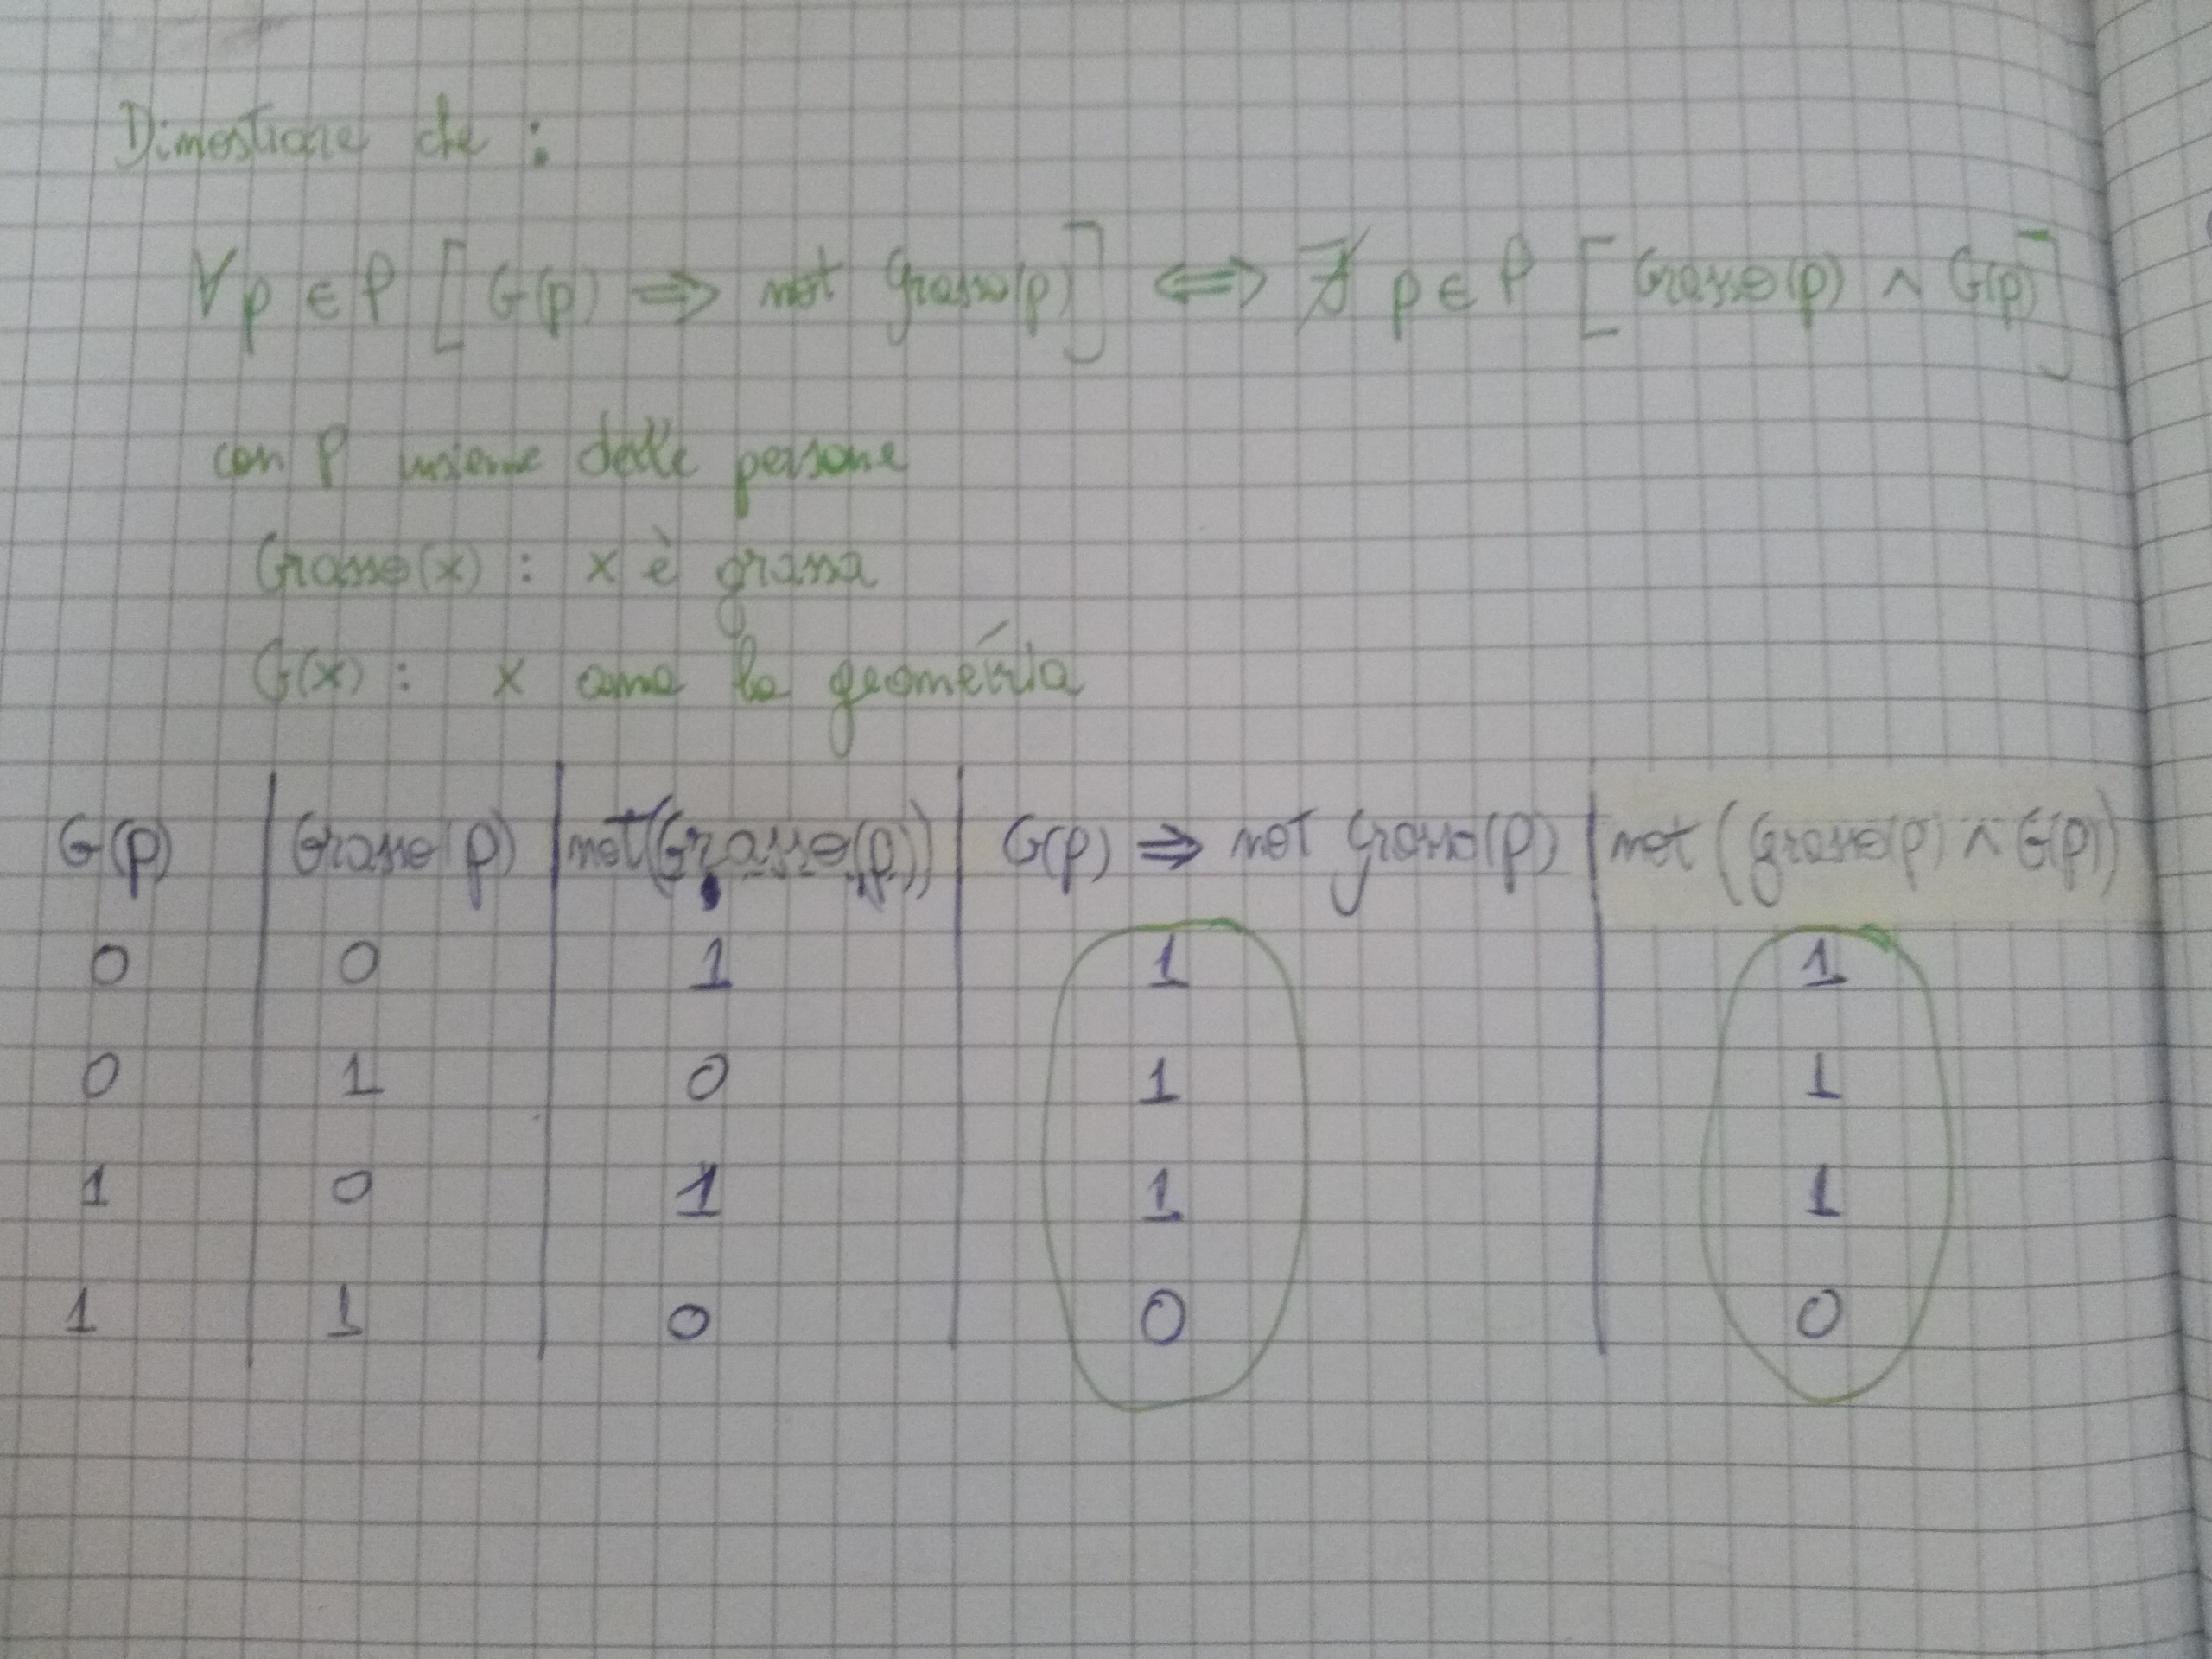 Dimostrare che :
∀p ∈ P [G(p) ⇒ not Grasso(p)] ⇔ ∄ p ∈ P [Grasso(p) ∧ G(p)]
con P insieme delle persone
Grasso(x) : x è grassa
G(x) : x ama la geometria
G(p) | Grasso(p) | not(Grasso(p)) | G(p) ⇒ not Grasso(p) | not (Grasso(p) ∧ G(p))
0 0 1 1 1
0 1 0 1 1
1 0 1 1 1
1 1 0 0 0